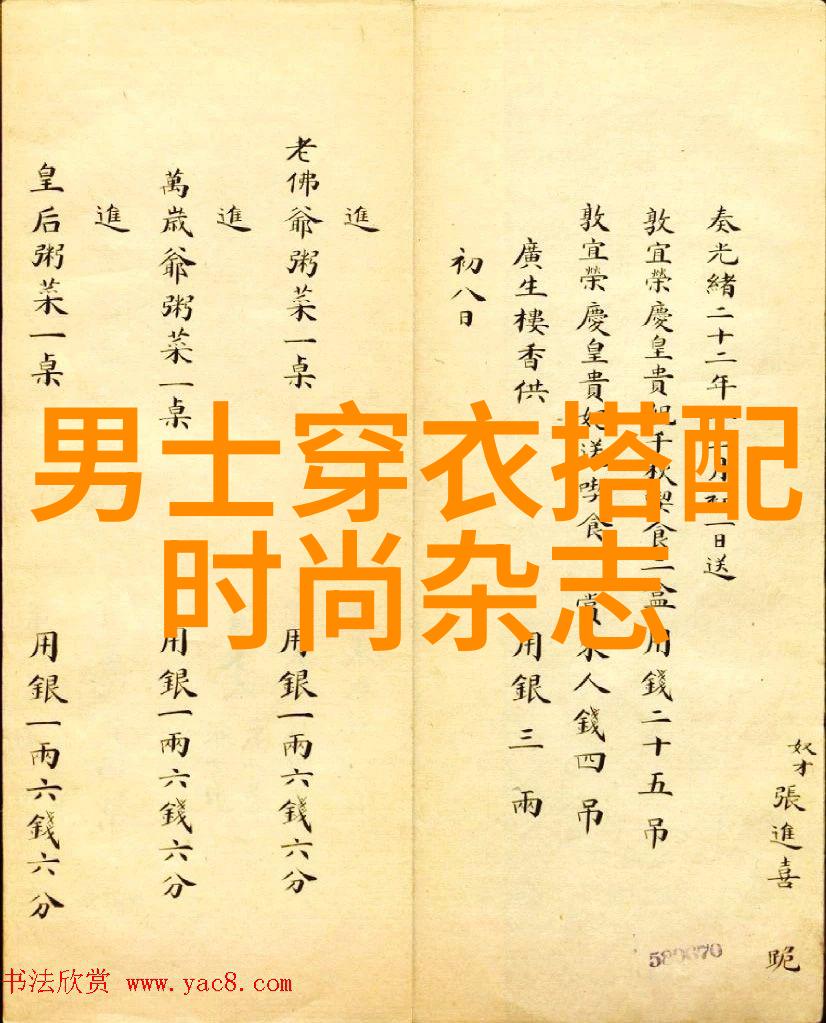 奴才張進喜 跪
奏光緒二十二年十一月初二日送
敦宜榮慶皇貴妃千秋喫食二盒用錢二十五吊
敦宜榮慶皇貴妃送喫食 賞家人錢四吊
廣生樓香供 用銀三兩
初八日
進
老佛爺粥菜一桌 用銀一兩六錢六分
進
萬歲爺粥菜一桌 用銀一兩六錢六分
進
皇后粥菜一桌 用銀一兩六錢六分
男士穿衣搭配
时尚杂志
589670
书法欣赏 www.yac8.com